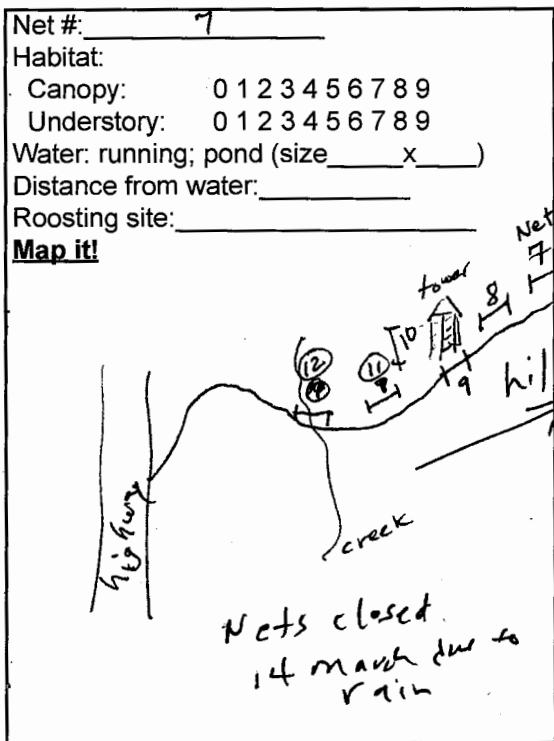 Net #: 7
Habitat:
Canopy: 0 1 2 3 4 5 6 7 8 9
Understory: 0 1 2 3 4 5 6 7 8 9
Water: running; pond (size_____x_____)
Distance from water:
Roosting site:
Map it!
Net
7
8
tower
10
9
11
9
12
hil
highway
creek
Nets closed
14 march due to
rain